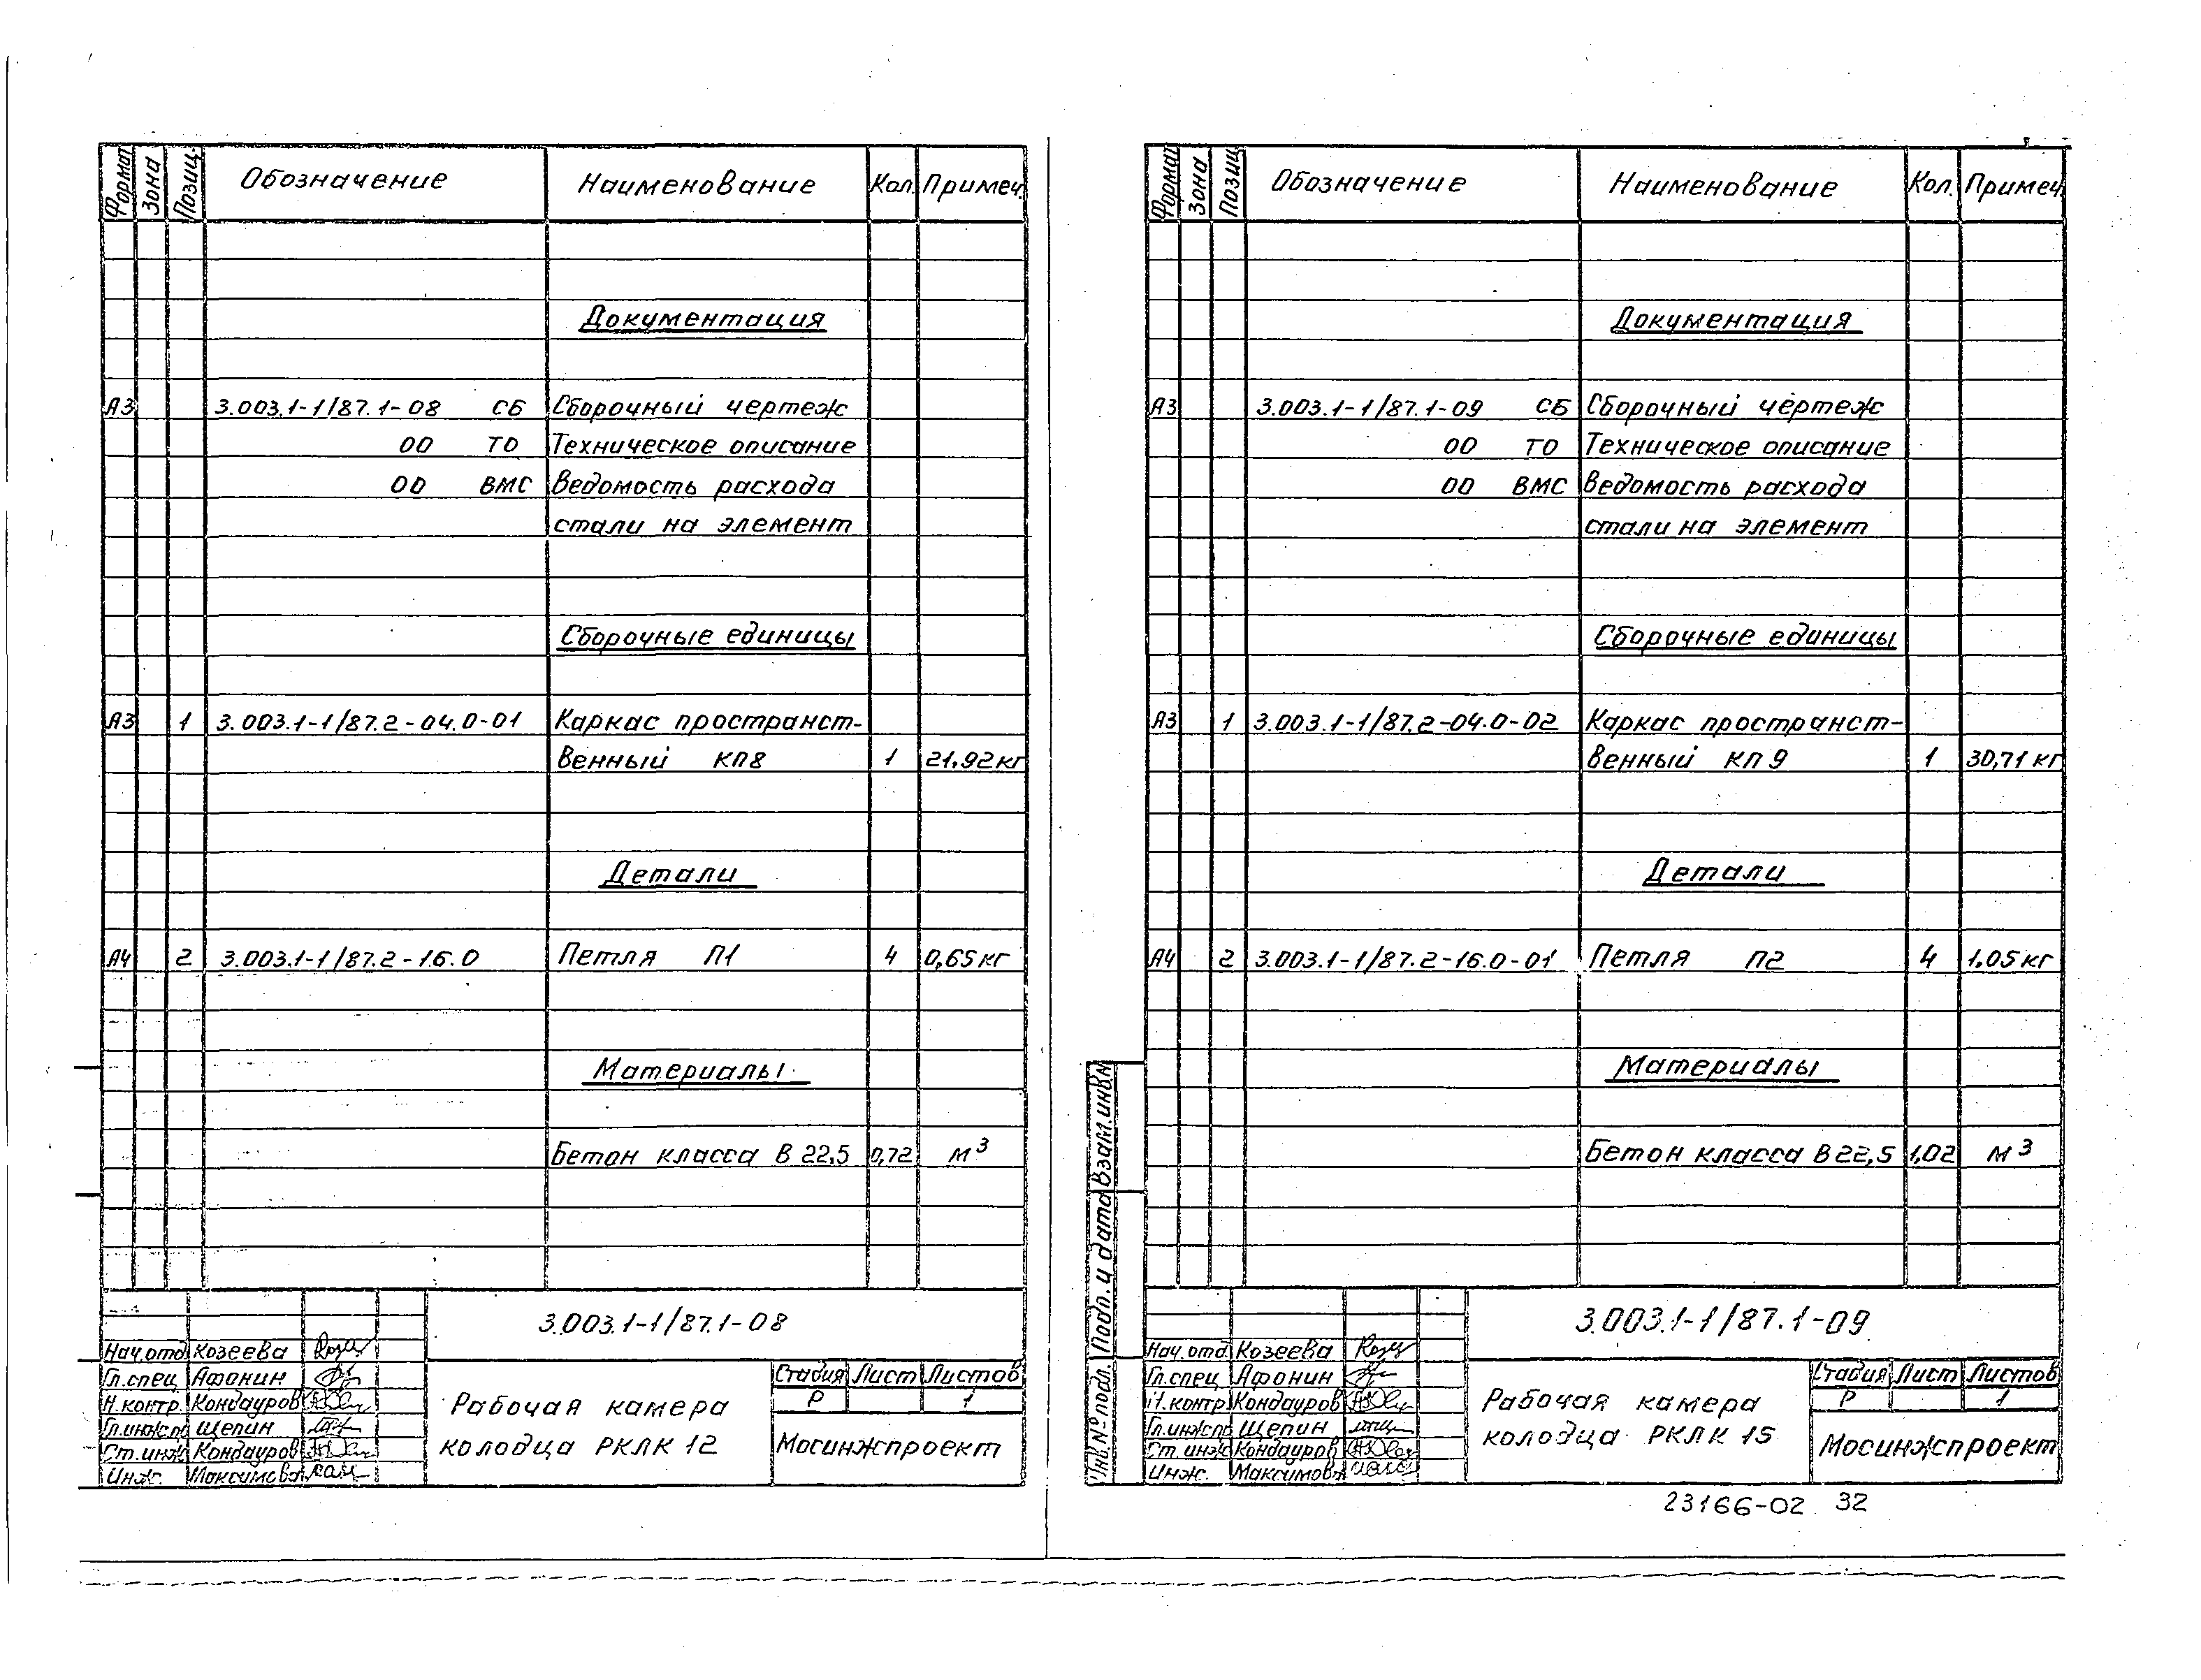 Формат Зона Позиц. Обозначение Наименование Кол. Примеч.
Документация
А3 3.003.1-1/87.1-08 СБ Сборочный чертеж
00 ТО Техническое описание
00 ВМС Ведомость расхода
стали на элемент
Сборочные единицы
А3 1 3.003.1-1/87.2-04.0-01 Каркас пространст-
венный КП8 1 21,92кг
Детали
А4 2 3.003.1-1/87.2-16.0 Петля П1 4 0,65кг
Материалы
Бетон класса В 22,5 0,72 м³
3.003.1-1/87.1-08
Нач.отд. Козеева
Гл.спец Афонин
Н.контр. Кондауров
Гл.инж.пр Щепин
Ст.инж Кондауров
Инж. Максимова
Рабочая камера
колодца РКЛК 12
Стадия Лист Листов
Р 1
Мосинжпроект
Формат Зона Позиц. Обозначение Наименование Кол. Примеч.
Документация
А3 3.003.1-1/87.1-09 СБ Сборочный чертеж
00 ТО Техническое описание
00 ВМС Ведомость расхода
стали на элемент
Сборочные единицы
А3 1 3.003.1-1/87.2-04.0-02 Каркас пространст-
венный КП9 1 30,71 кг
Детали
А4 2 3.003.1-1/87.2-16.0-01 Петля П2 4 1,05кг
Материалы
Бетон класса В 22,5 1,02 м³
Инв.№ подл. Подп. и дата Взам.инв.№
3.003.1-1/87.1-09
Нач.отд. Козеева
Гл.спец Афонин
Н.контр Кондауров
Гл.инж.пр Щепин
Ст.инж Кондауров
Инж. Максимова
Рабочая камера
колодца РКЛК 15
Стадия Лист Листов
Р 1
Мосинжпроект
23166-02 32